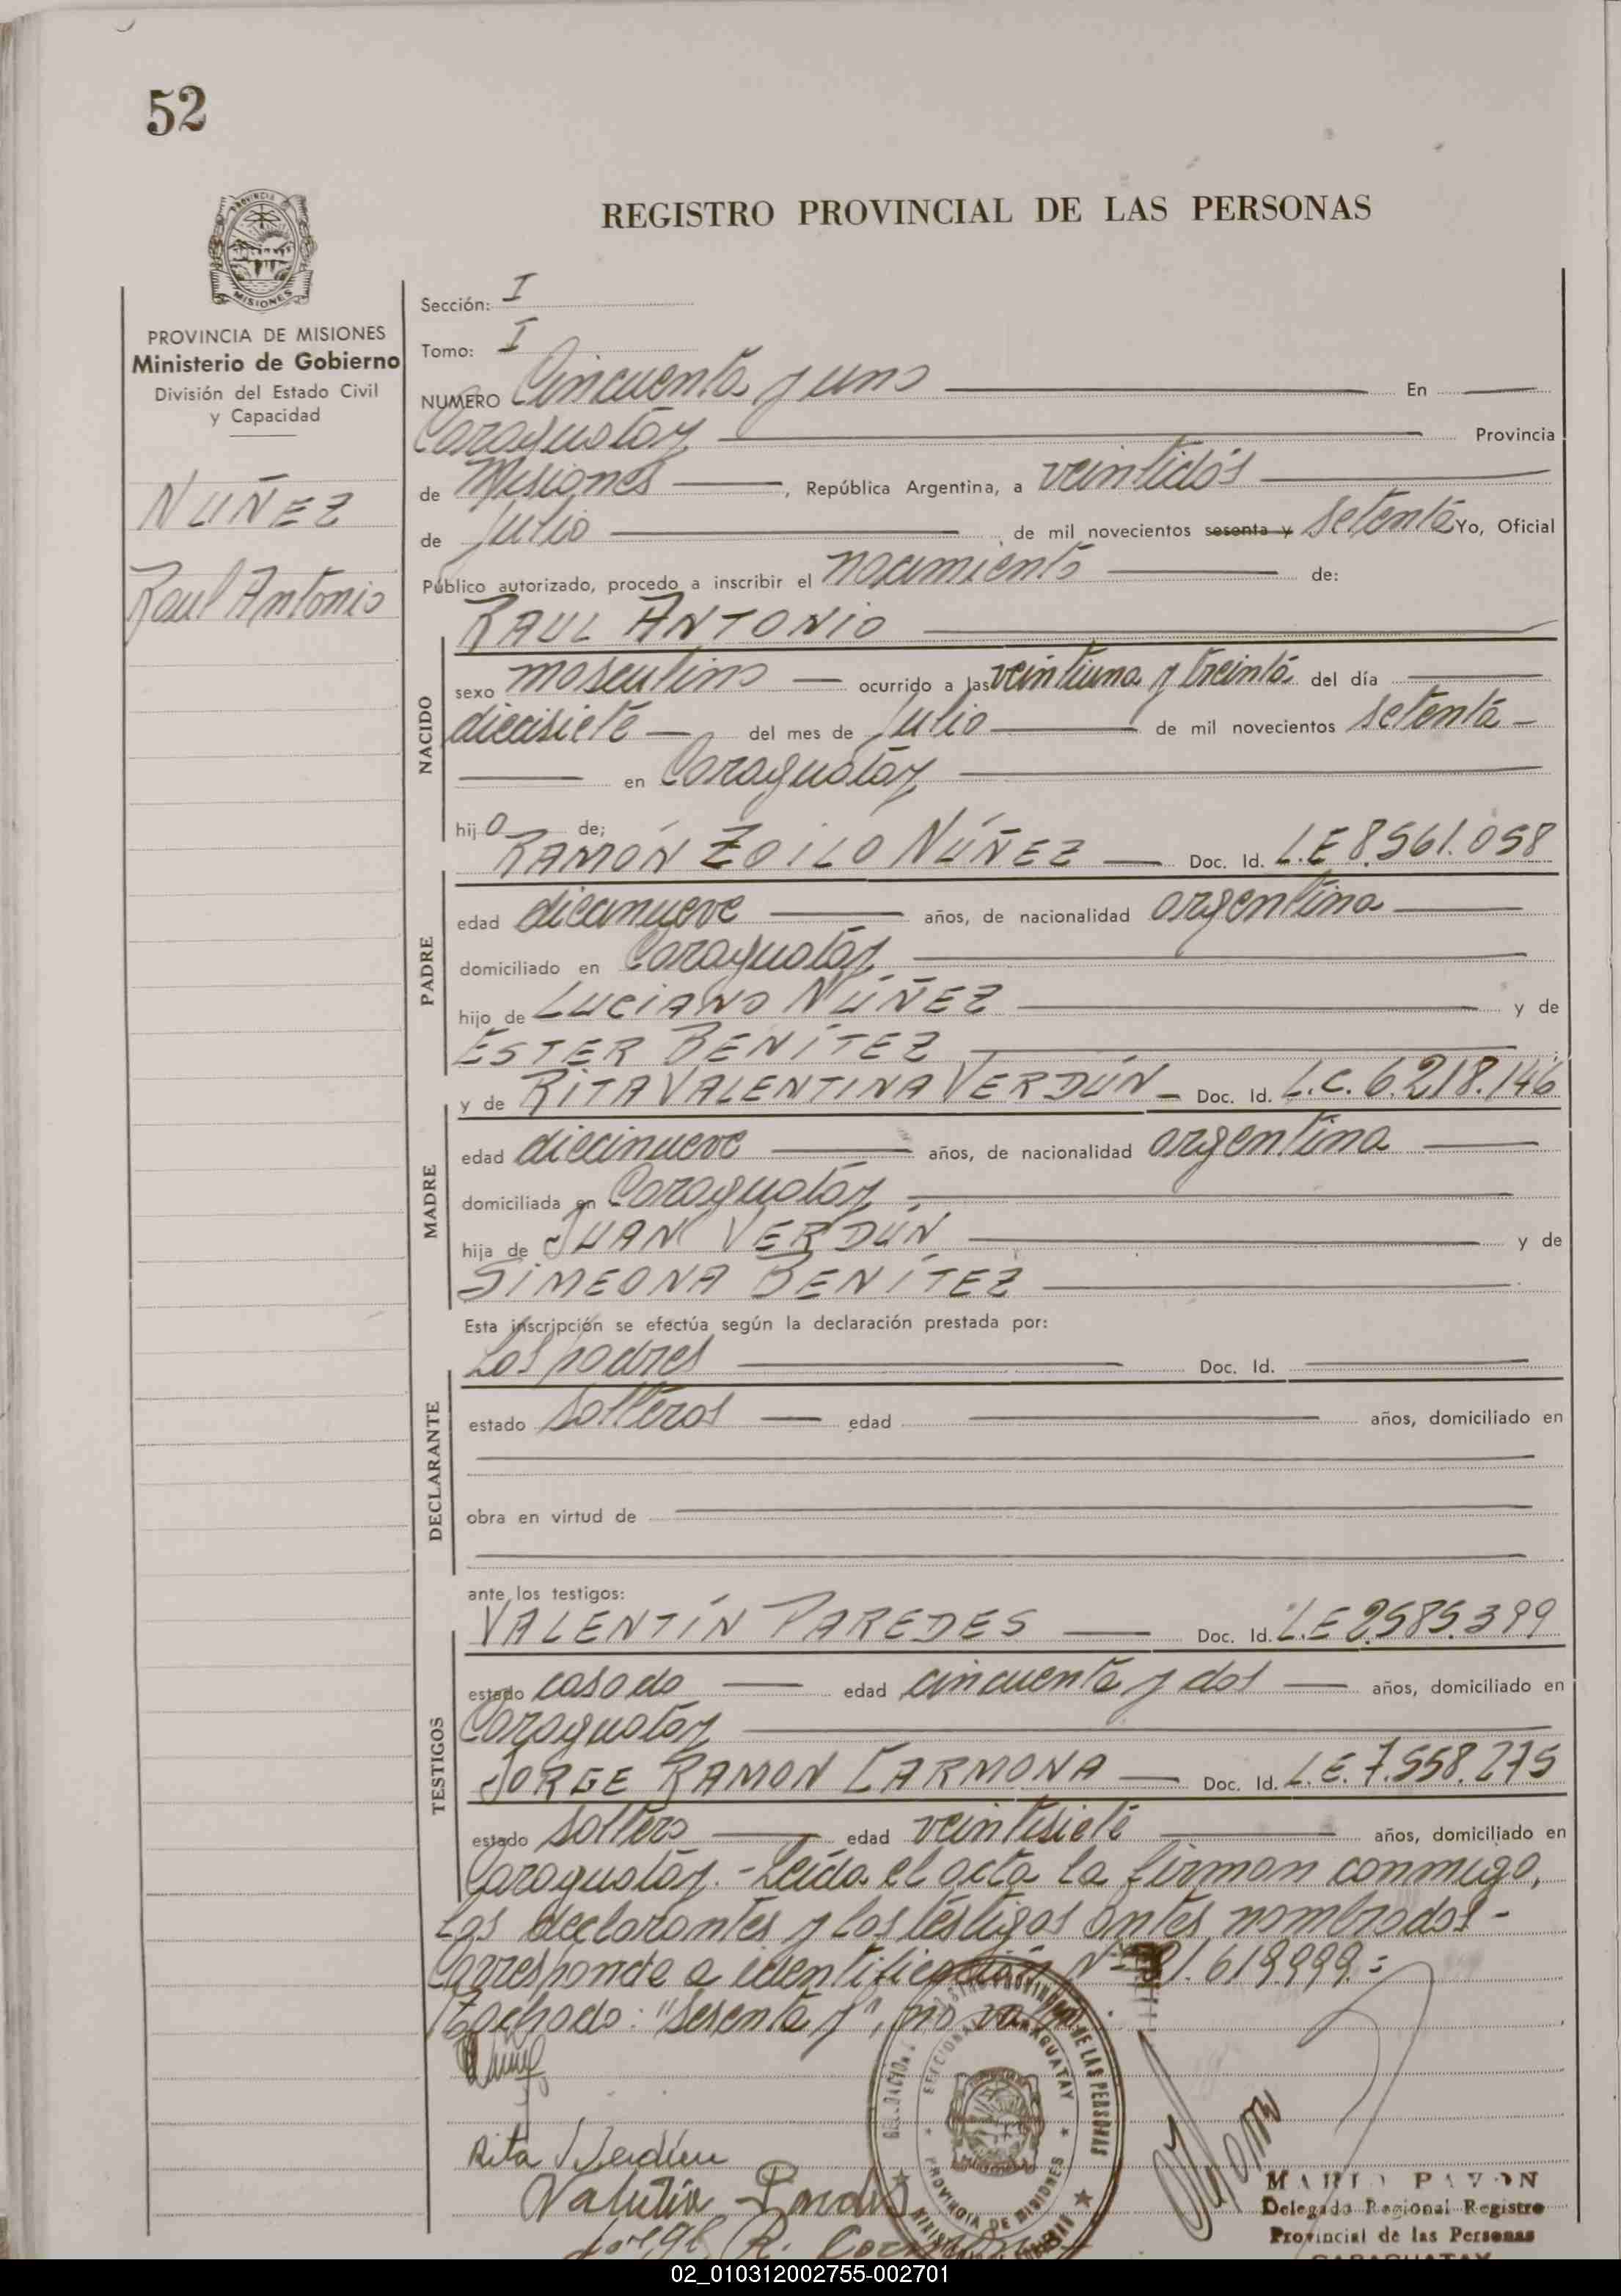 52
REGISTRO PROVINCIAL DE LAS PERSONAS
PROVINCIA DE MISIONES
Ministerio de Gobierno
División del Estado Civil
y Capacidad
NUÑEZ
Raul Antonio
Sección: I
Tomo: I
NUMERO Cincuenta y uno En
Caraguatáy Provincia
de Misiones, República Argentina, a veintidós
de Julio de mil novecientos sesenta y setenta Yo, Oficial
Público autorizado, procedo a inscribir el nacimiento de:
RAUL ANTONIO
NACIDO
sexo masculino ocurrido a las veintiuna y treinta del día
diecisiete del mes de Julio de mil novecientos setenta
en Caraguatáy
hijo de;
RAMÓN ZOILO NÚÑEZ Doc. Id. L.E 8.561.058
PADRE
edad diecinueve años, de nacionalidad argentina
domiciliado en Caraguatáy
hijo de LUCIANO NÚÑEZ y de
ESTER BENÍTEZ
y de RITA VALENTINA VERDÚN Doc. Id. L.C. 6.218.146
MADRE
edad diecinueve años, de nacionalidad argentina
domiciliada en Caraguatáy
hija de JUAN VERDÚN y de
SIMEONA BENÍTEZ
Esta inscripción se efectúa según la declaración prestada por:
Los padres Doc. Id.
DECLARANTE
estado Solteros edad años, domiciliado en
obra en virtud de
ante los testigos:
VALENTÍN PAREDES Doc. Id. L.E 2.585.399
TESTIGOS
estado casado edad cincuenta y dos años, domiciliado en
Caraguatáy
JORGE RAMON CARMONA Doc. Id. L.E. 7.558.275
estado soltero edad veintisiete años, domiciliado en
Caraguatáy.- Leída el acta la firman conmigo,
los declarantes y los testigos antes nombrados-
Corresponde a identificación Nº 21.619.999.-
Tachado: "sesenta y", no vale.
Rita Verdun
Valentin Paredes
Jorge R. Carmona
PROVINCIA DE MISIONES
MARIO PAVON
Delegado Regional Registro
Provincial de las Personas
CARAGUATAY
02_010312002755-002701